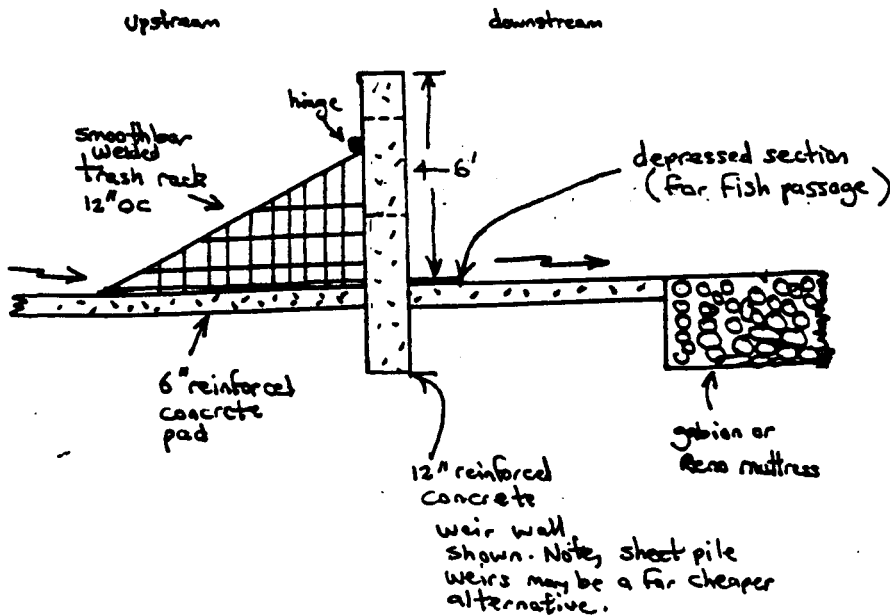 upstream
downstream
hinge
smooth bar
welded
trash rack
12" OC
6'
depressed section
(for fish passage)
6" reinforced
concrete
pad
12" reinforced
concrete
weir wall
shown. Note, sheet pile
weirs may be a far cheaper
alternative.
gabion or
Reno mattress